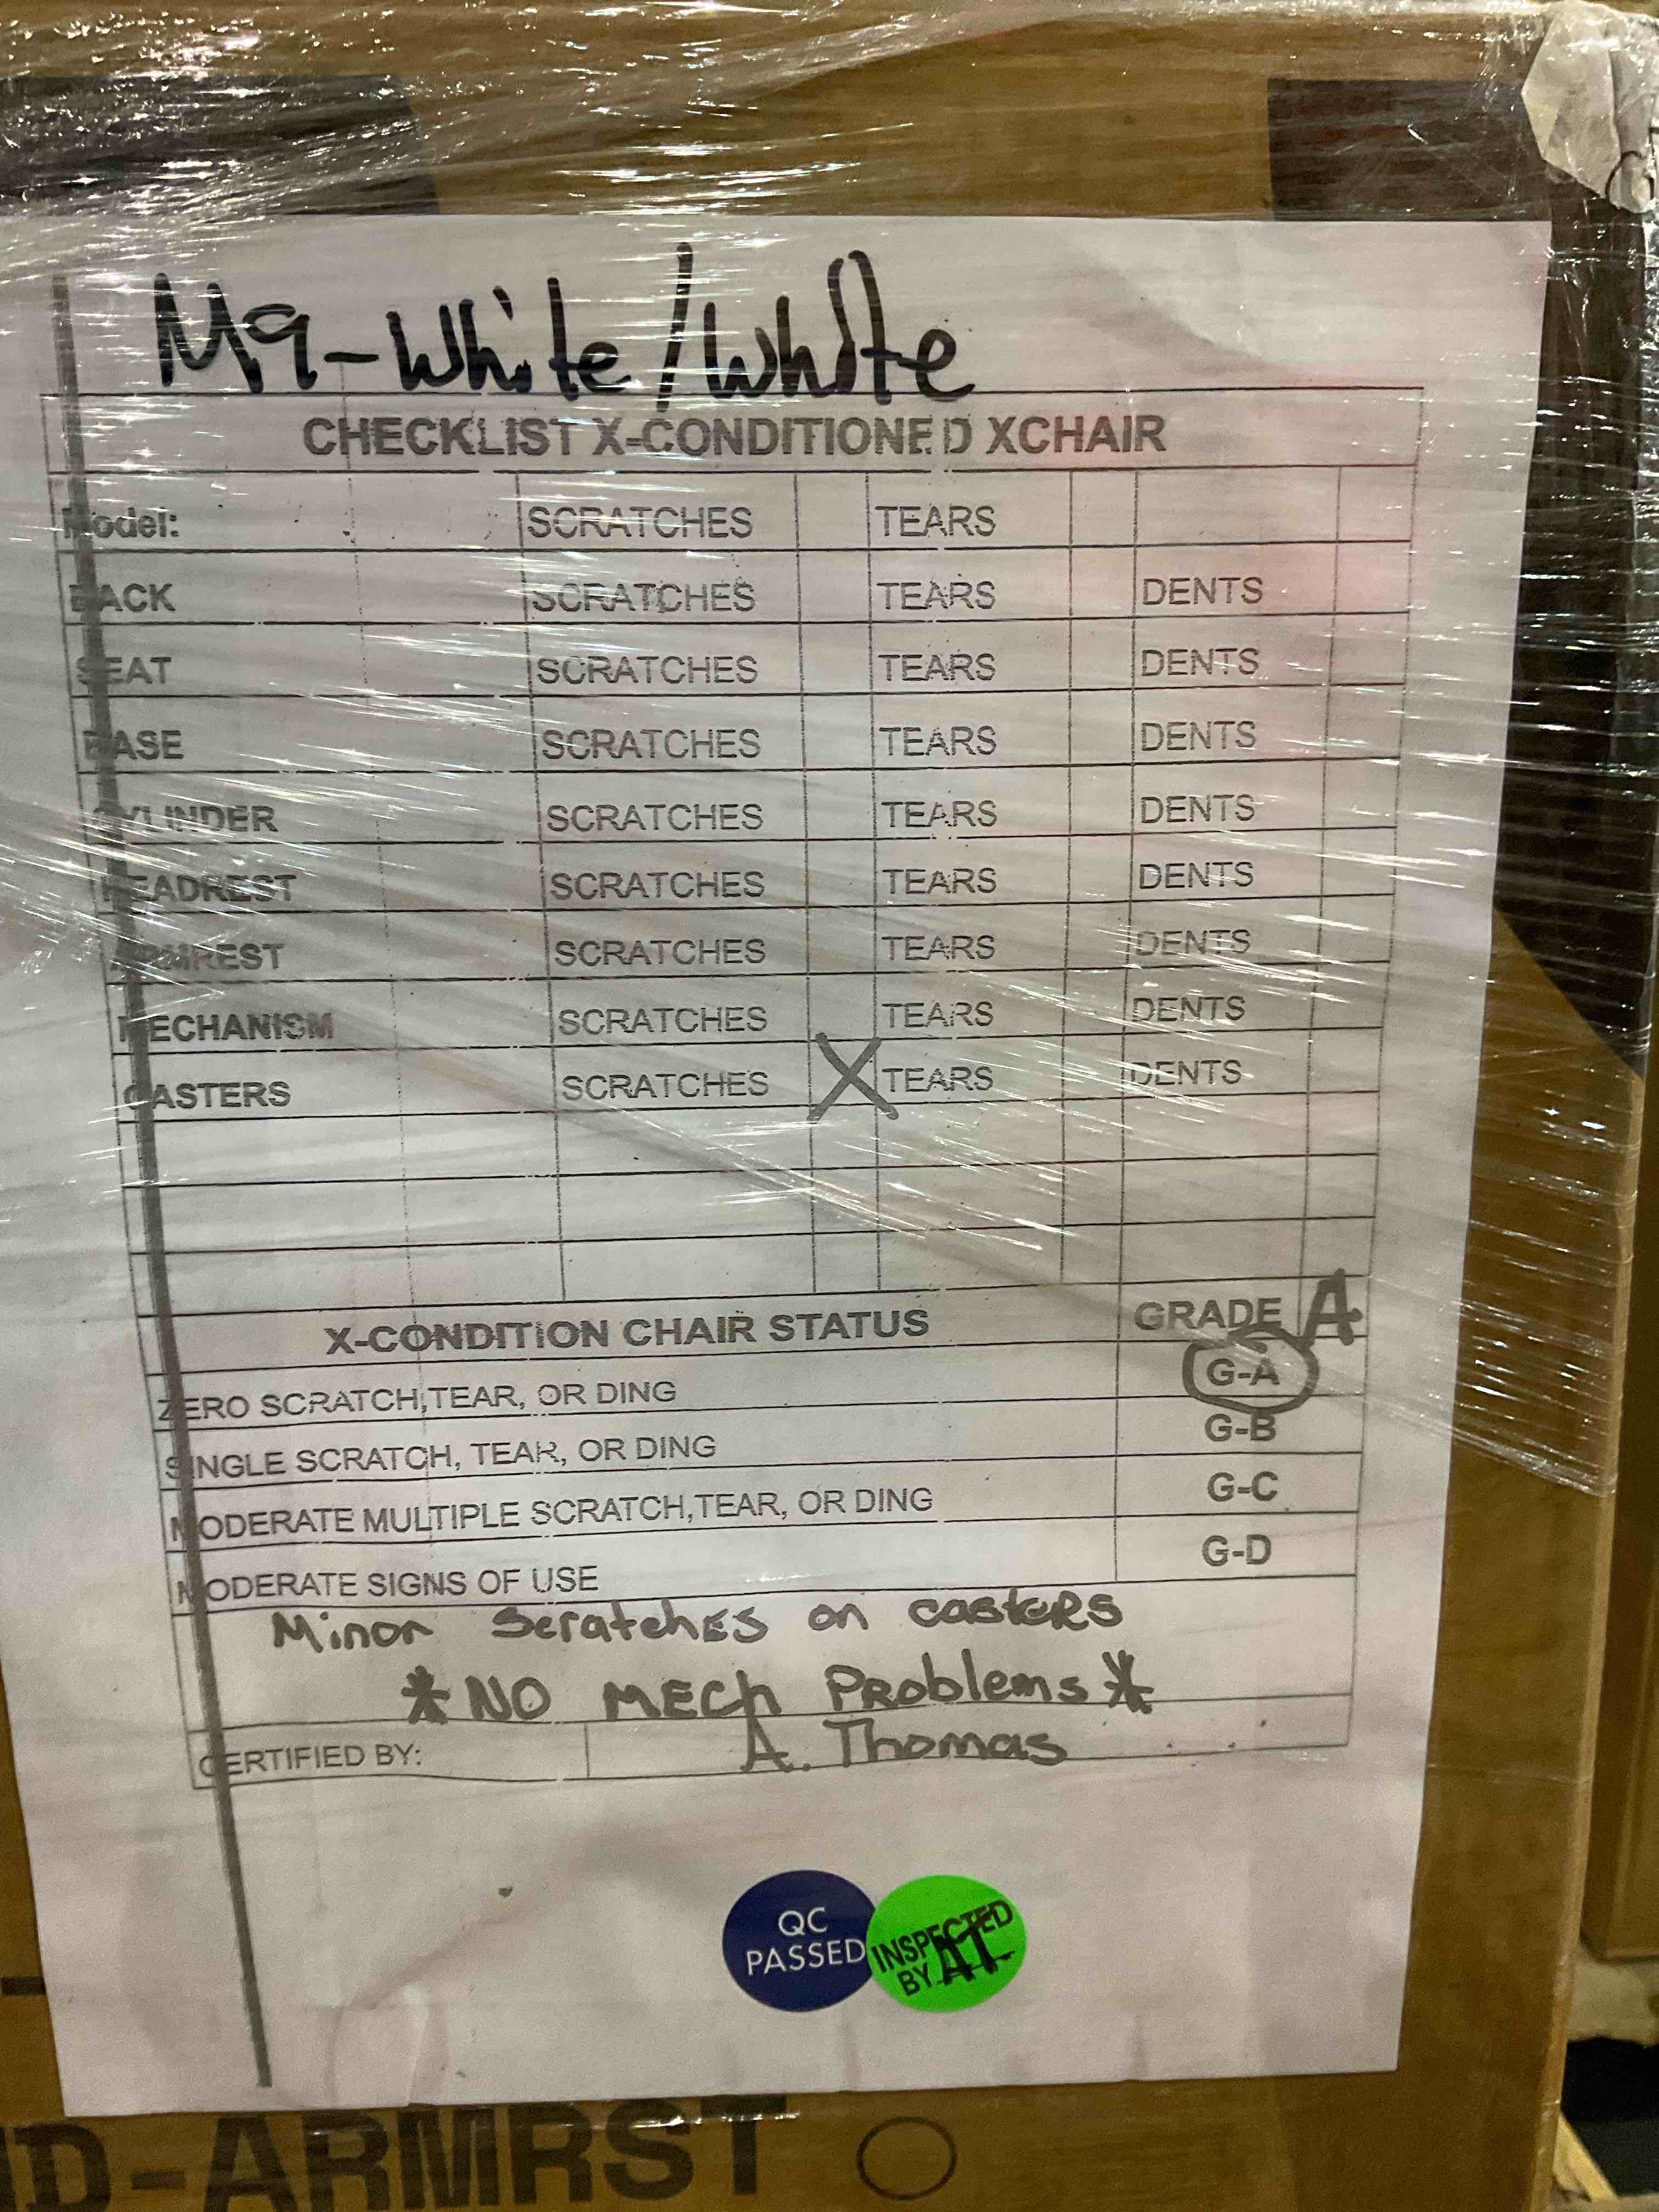 M9-White/White
CHECKLIST X-CONDITIONED XCHAIR
Model: SCRATCHES TEARS
BACK SCRATCHES TEARS DENTS
SEAT SCRATCHES TEARS DENTS
BASE SCRATCHES TEARS DENTS
CYLINDER SCRATCHES TEARS DENTS
HEADREST SCRATCHES TEARS DENTS
ARMREST SCRATCHES TEARS DENTS
MECHANISM SCRATCHES TEARS DENTS
CASTERS SCRATCHES X TEARS DENTS
X-CONDITION CHAIR STATUS GRADE A
ZERO SCRATCH,TEAR, OR DING G-A
SINGLE SCRATCH, TEAR, OR DING G-B
MODERATE MULTIPLE SCRATCH,TEAR, OR DING G-C
MODERATE SIGNS OF USE G-D
Minor Scratches on casters
*NO MECh Problems*
CERTIFIED BY: A. Thomas
QC
PASSED
INSPECTED
BY AT
D-ARMRST